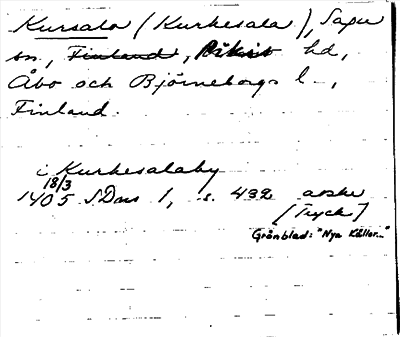 Kursalo (Kurkesala), Sagu
sn., Finland, Pikis hd,
Åbo och Björneborgs l–,
Finland.
i Kurkesalaby
18/3
1405 SDns 1, s. 432 avskr
[Tryck]
Grönblad: "Nya Källor..."